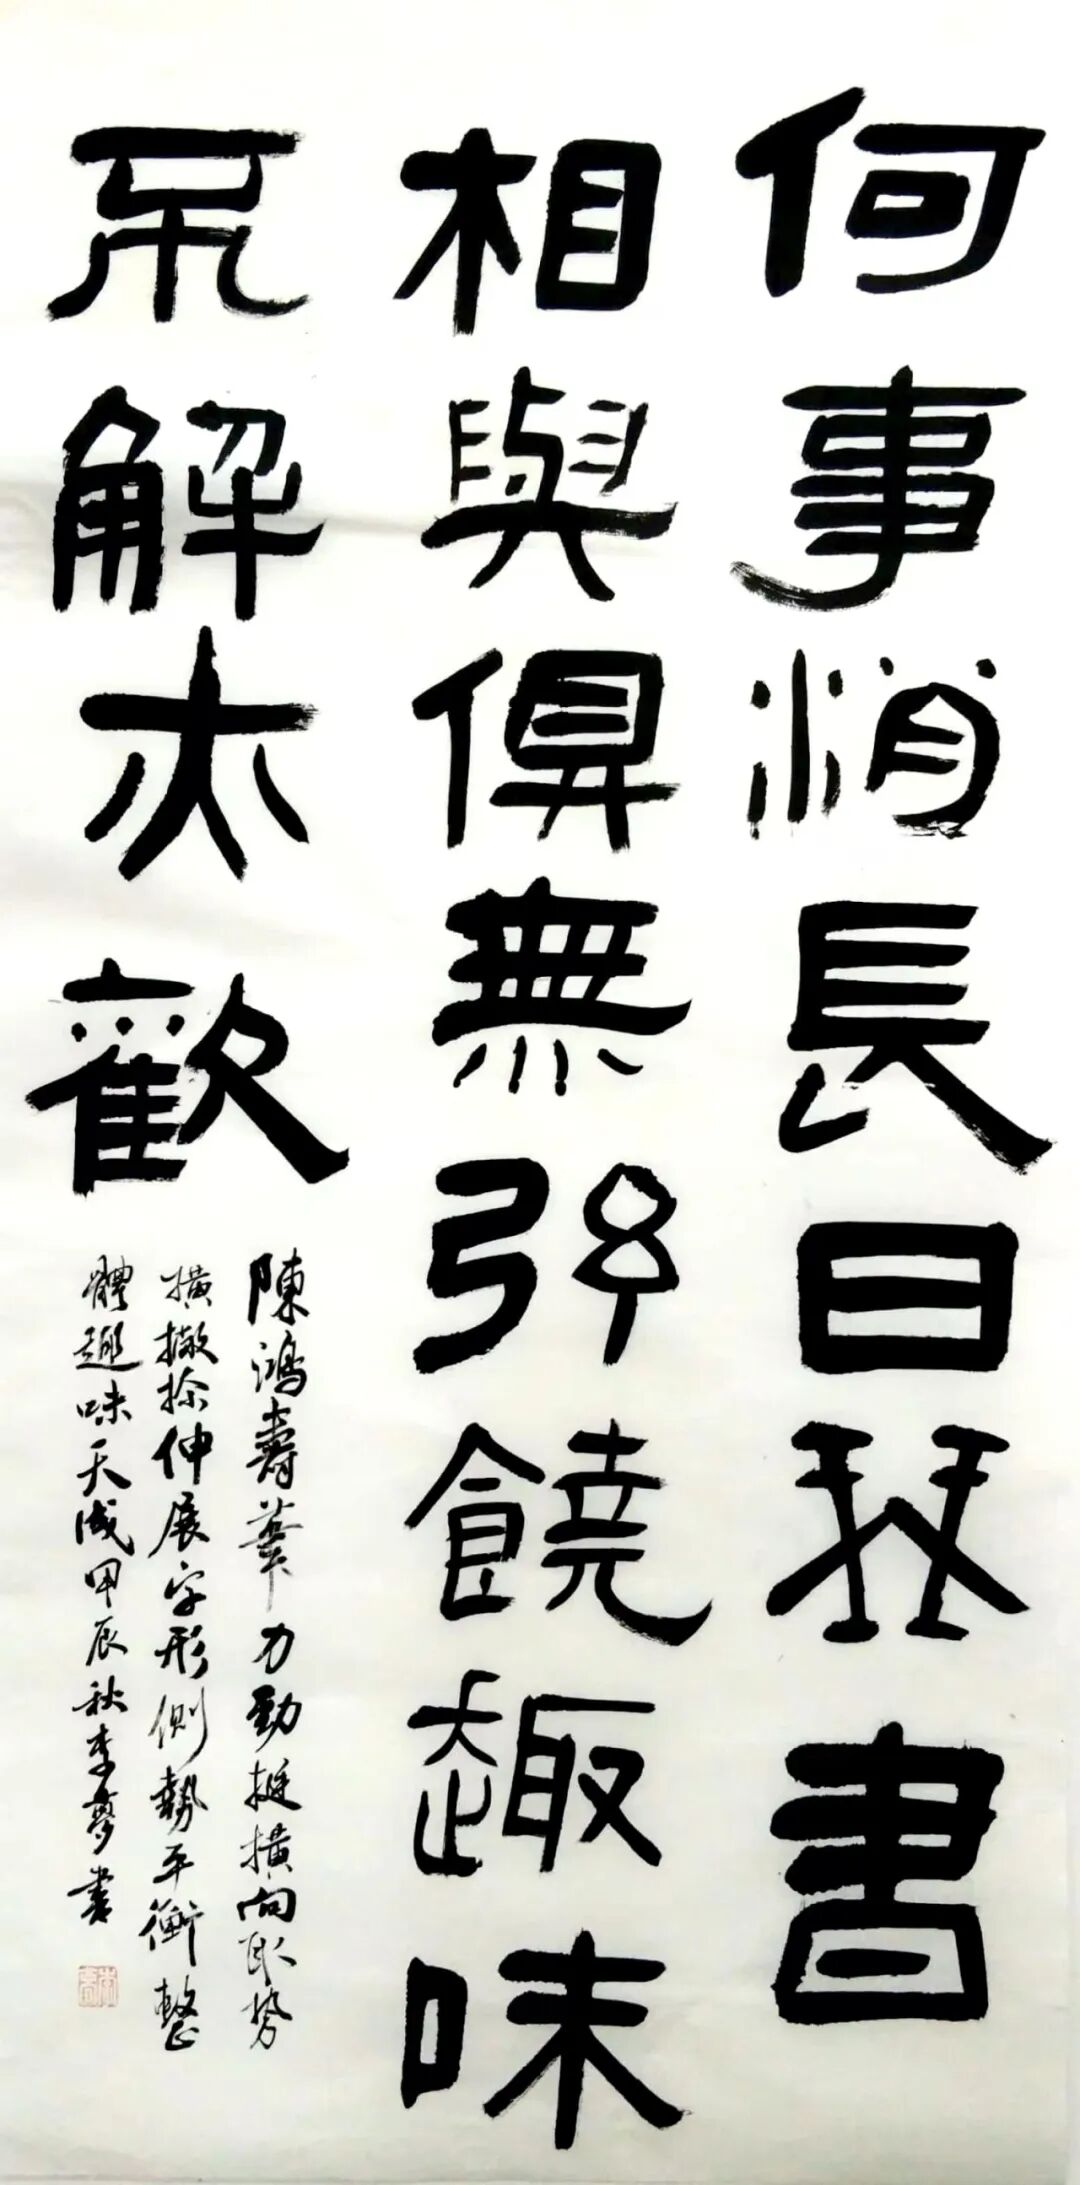 何事消長日琹書
相與俱無弦饒趣味
不解亦歡
陳鴻壽隸書筆力勁挺橫向取勢
橫撇捺伸展字形側勢平衡整
體趣味天成甲辰秋李夢書